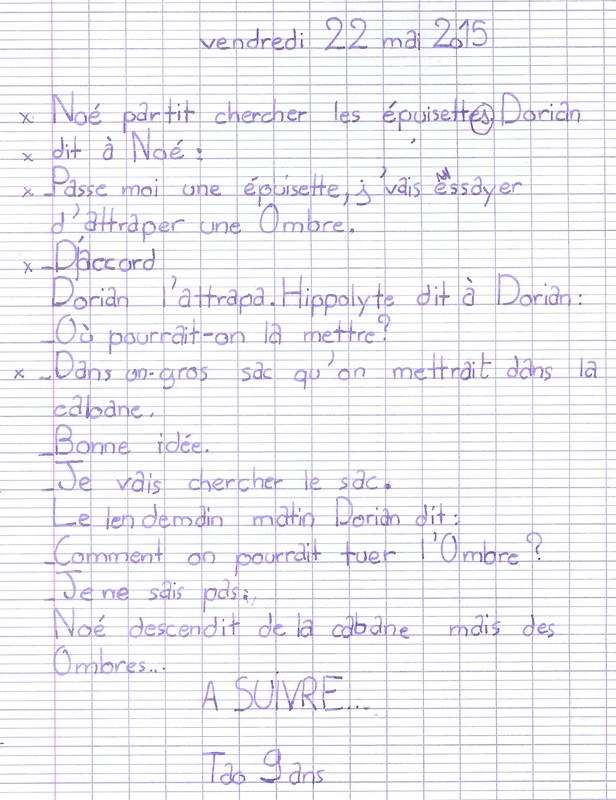 vendredi 22 mai 2015
x Noé partit chercher les épuisettes Dorian
x dit à Noé :
x - Passe moi une épuisette, j'vais essayer
d'attraper une Ombre.
x - D'accord
Dorian l'attrapa. Hippolyte dit à Dorian :
- Où pourrait-on la mettre ?
x - Dans un gros sac qu'on mettrait dans la
cabane.
- Bonne idée.
- Je vais chercher le sac.
Le lendemain matin Dorian dit :
- Comment on pourrait tuer l'Ombre ?
- Je ne sais pas.
Noé descendit de la cabane mais des
Ombres...
A SUIVRE...
Tao 9 ans